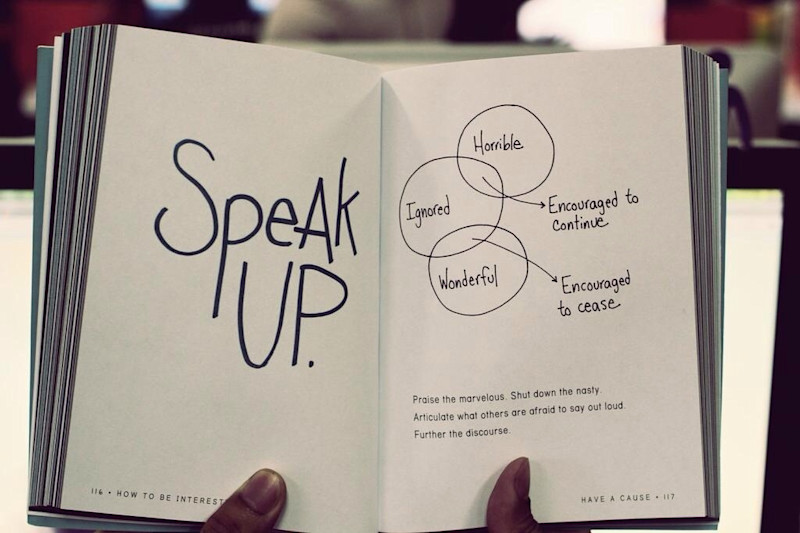 SpeAk
UP.
116 • HOW TO BE INTEREST
Horrible
Ignored
Encouraged to
continue
Wonderful
Encouraged
to cease
Praise the marvelous. Shut down the nasty.
Articulate what others are afraid to say out loud.
Further the discourse.
HAVE A CAUSE • 117